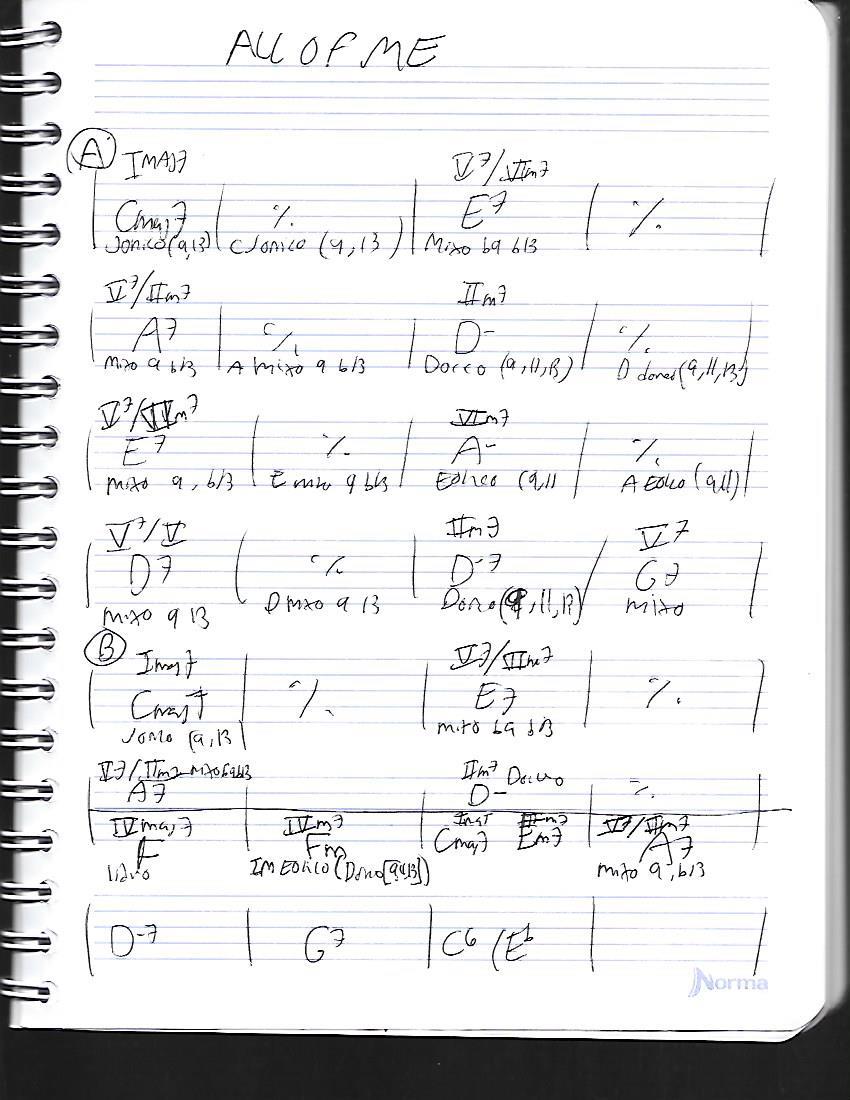 ALL OF ME
A IMAJ7 V7/VIm7
Cmaj7 | ٪ | E7 | ٪ |
Jonico (9,13) | C Jonico (9, 13) Mixo b9 b13
V7/IIm7 IIm7
A7 | ٪ | D- | ٪ |
Mixo 9 b13 | A Mixo 9 b13 (9,11,13) (9,11,13)
V7/VIm7 VIm7
E7 | ٪ | A- | ٪ |
mixo 9, b13 E mixo 9 b13 Eolico (9,11 A Eolico (9,11)
V7/V IIm7 V7
D7 | ٪ | D-7 / G7 |
mixo 9 13 D mixo 9 13 (9,11,13) mixo
B Imaj7 V7/VIm7
Cmaj7 | ٪ | E7 | ٪ |
(9,13 mixo b9 b13
V7/IIm7 mixo b9 b13 IIm7
A7 D- ٪
IVmaj7 IVm7 Imaj7 IIIm7 V7/IIm7
F Fm Cmaj7 Em7 A7
Lidio IM EOLICO mixo 9, b13
D-7 | G7 | C6 (Eb |
Norma